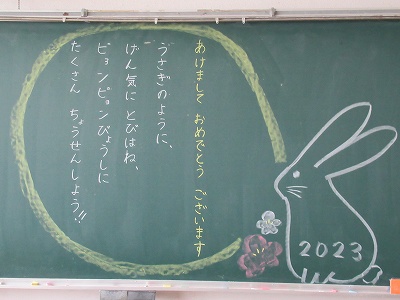 あけまして おめでとう ございます
うさぎのように、
げん気に とびはね、
ピョンピョンびょうしに
たくさん ちょうせんしよう!!
2023